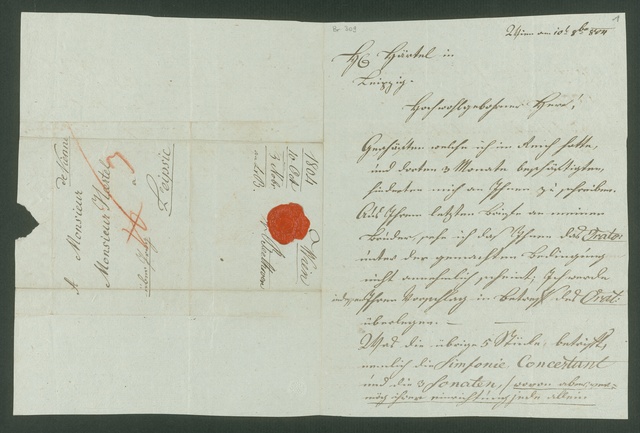 Br 709
1
Wien am 10t 8br 804
H. Härtel in
Leipzig.
Hochwohlgebohrner Herr!
Geschäften welche ich im Auch hatte,
und dorten 3 Monate beschäftigten,
hinderten mich an Ihnen zu schreiben.
Aus Ihrem letzten Briefe an meinen
Bruder, sehe ich daß Ihnen das Orato:
unter der gemachten Bedingung
nicht annehmlich scheint, ich werde
indessen Ihren Vorschlag in Betref des Orat:
überlegen. —
Was die übrige 5 Stücke betrift,
nemlich die Simfonie, Concertant
und die 3 Sonaten, (wovon aber ver-
mög ihrer einrichtung jede allein
A Monsieur
Monsieur Härtel
à
Leipsic
de Vienne
1804
10 Oct
Wien
v. Beethoven